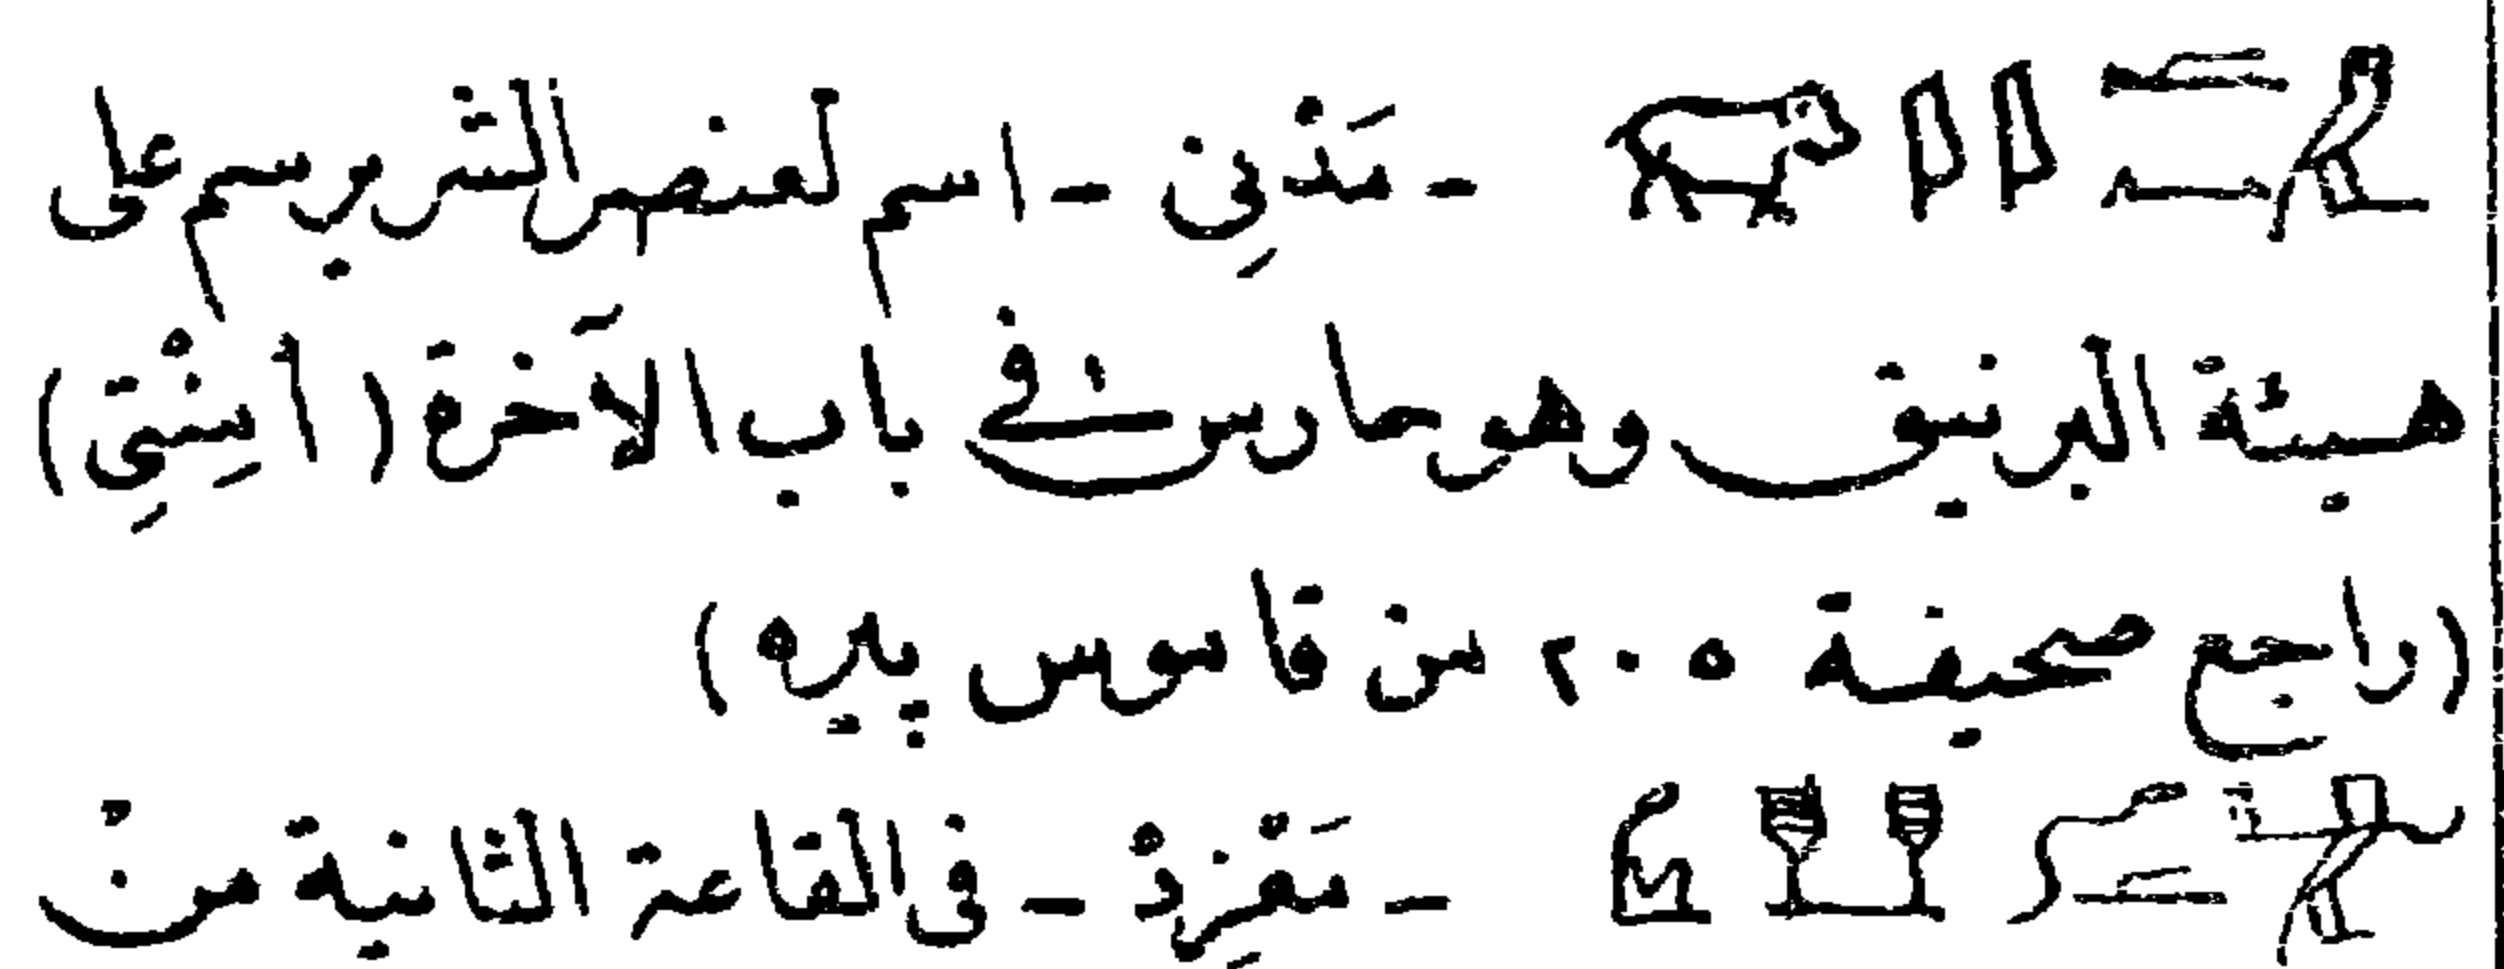 — — اسم لعنصر الشر يرسم على
هيئة البرنيق وهو حارس فى باب الآخرة (أمِنْتِى)
(راجع صحيفة ٢٠٥ من قاموس پيره)
— — فى القاعة الثانية من